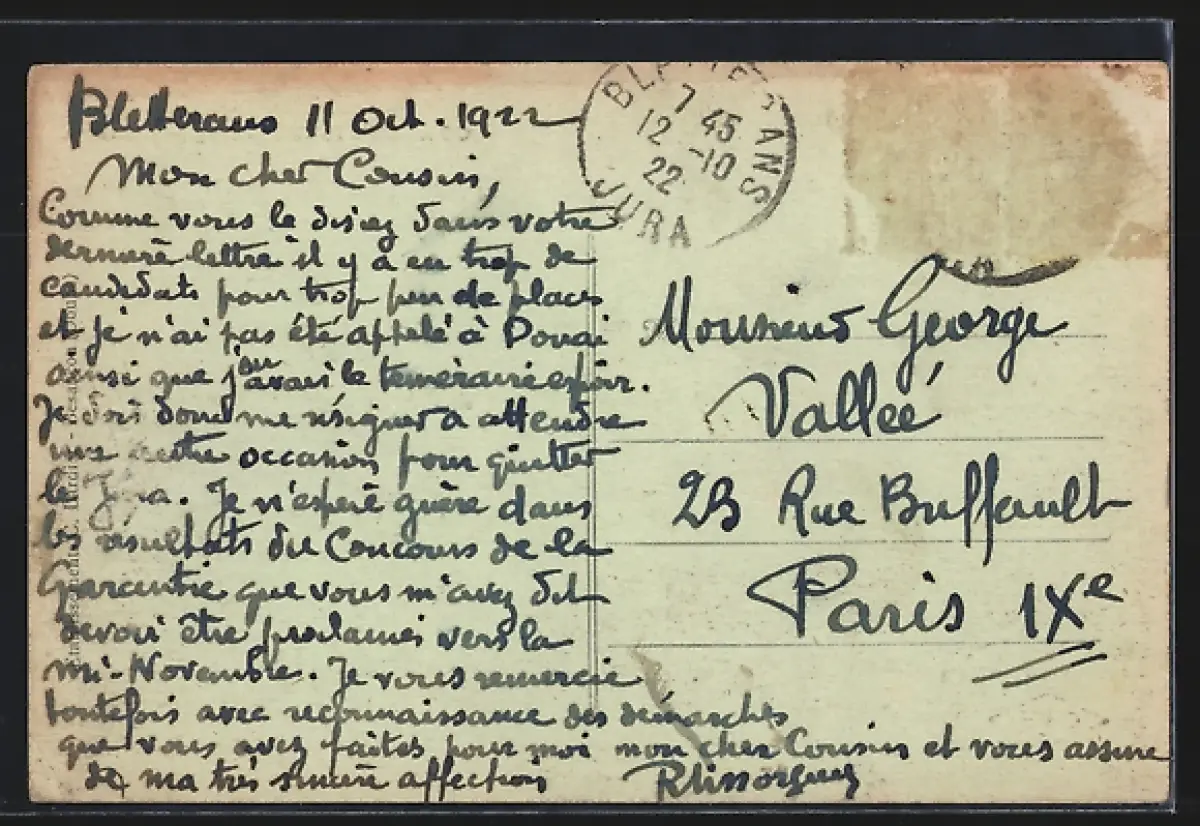 Bletterans 11 Oct. 1922
Mon cher Cousin,
Comme vous le disiez dans votre
dernière lettre il y a eu trop de
candidats pour trop peu de places
et je n'ai pas été appelé à Douai
ainsi que j'en avais le téméraire espoir.
Je dois donc me résigner à attendre
une autre occasion pour quitter
le Jura. Je n'espère guère dans
les résultats du Concours de la
Garantie que vous m'avez dit
devoir être proclamés vers la
mi-Novembre. Je vous remercie
toutefois avec reconnaissance des démarches
que vous avez faites pour moi mon cher Cousin et vous assure
de ma très sincère affection
BLETTERANS
7 45
12 -10
22
JURA
Monsieur George
Vallée
23 Rue Buffault
Paris IXe